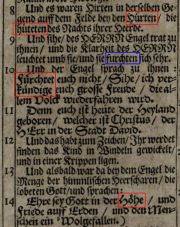 8 Und es waren Hirten in derselben Ge
gend auf dem Felde bey den Hürten / die
hüteten des Nachts ihrer Heerde.
9 Und sihe / des HERRN Engel trat zu
ihnen / und die Klarheit des HERRN
leuchtet umb sie / und sie furchten sich sehr.
10 Und der Engel sprach zu ihnen:
Fürchtet euch nicht / Sihe / ich ver-
kündige euch grosse Freude / die al-
lem Volck wiederfahren wird.
11 Denn euch ist heute der Heyland
gebohren / welcher ist Christus / der
HErr in der Stadt David.
12 Und das habt zum Zeichen / Ihr werdet
finden das Kind in Windeln gewickelt /
und in einer Krippen ligen.
13 Und alsbald war da bey dem Engel die
Menge der himmlischen Heerscharen / die
lobeten Gott / und sprachen:
14 Ehre sey Gott in der Höhe / und
Friede auff Erden / und den Men-
schen ein Wolgefallen.